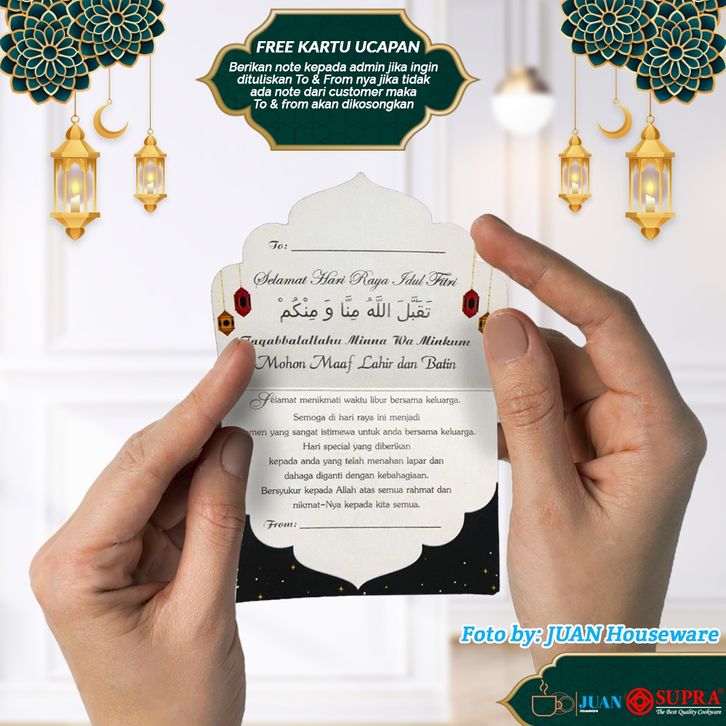 FREE KARTU UCAPAN
Berikan note kepada admin jika ingin
dituliskan To & From nya jika tidak
ada note dari customer maka
To & from akan dikosongkan
To:
Selamat Hari Raya Idul Fitri
تَقَبَّلَ اللَّهُ مِنَّا وَ مِنْكُمْ
Taqabbalallahu Minna Wa Minkum
Mohon Maaf Lahir dan Batin
Selamat menikmati waktu libur bersama keluarga.
Semoga di hari raya ini menjadi
men yang sangat istimewa untuk anda bersama keluarga.
Hari special yang diberikan
kepada anda yang telah menahan lapar dan
dahaga diganti dengan kebahagiaan.
Bersyukur kepada Allah atas semua rahmat dan
nikmat-Nya kepada kita semua.
From:
Foto by: JUAN Houseware
JUAN SUPRA
HOUSEWARE The Best Quality Cookware